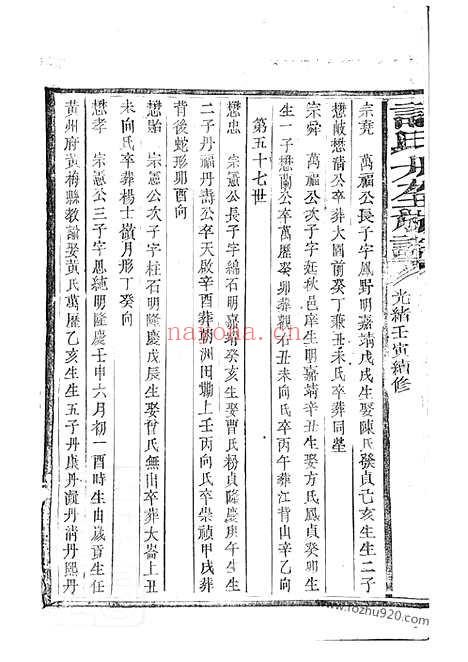 光緒壬寅續修
宗堯 萬福公長子字鳳野明嘉靖戊戌生娶陳氏發貞己亥生生二子
懋敱懋清公卒葬大圓前癸丁兼丑未氏卒葬同塋
宗舜 萬福公次子字延秋邑庠生明嘉靖辛丑生娶方氏鳳貞癸卯生
生一子懋蘭公卒萬歷癸卯葬觀石丑未向氏卒丙午葬江背山辛乙向
第五十七世
懋忠 宗憲公長子字綿石明嘉靖癸亥生娶曹氏粉貞隆慶庚午生生
二子丹福丹壽公卒天啟辛酉葬河洲田墈上壬丙向氏卒崇禎甲戌葬
背後蛇形卯酉向
懋貽 宗憲公次子字柱石明隆慶戊辰生娶曾氏無出卒葬大崙上丑
未向氏卒葬楊士嶺月形丁癸向
懋孝 宗憲公三子字思純明隆慶壬申六月初一酉時生由歲貢生任
黃州府黃梅縣教諭娶黃氏萬歷乙亥生生五子丹康丹嶷丹清丹熙丹
nayona.cn
www.fozhu920.com